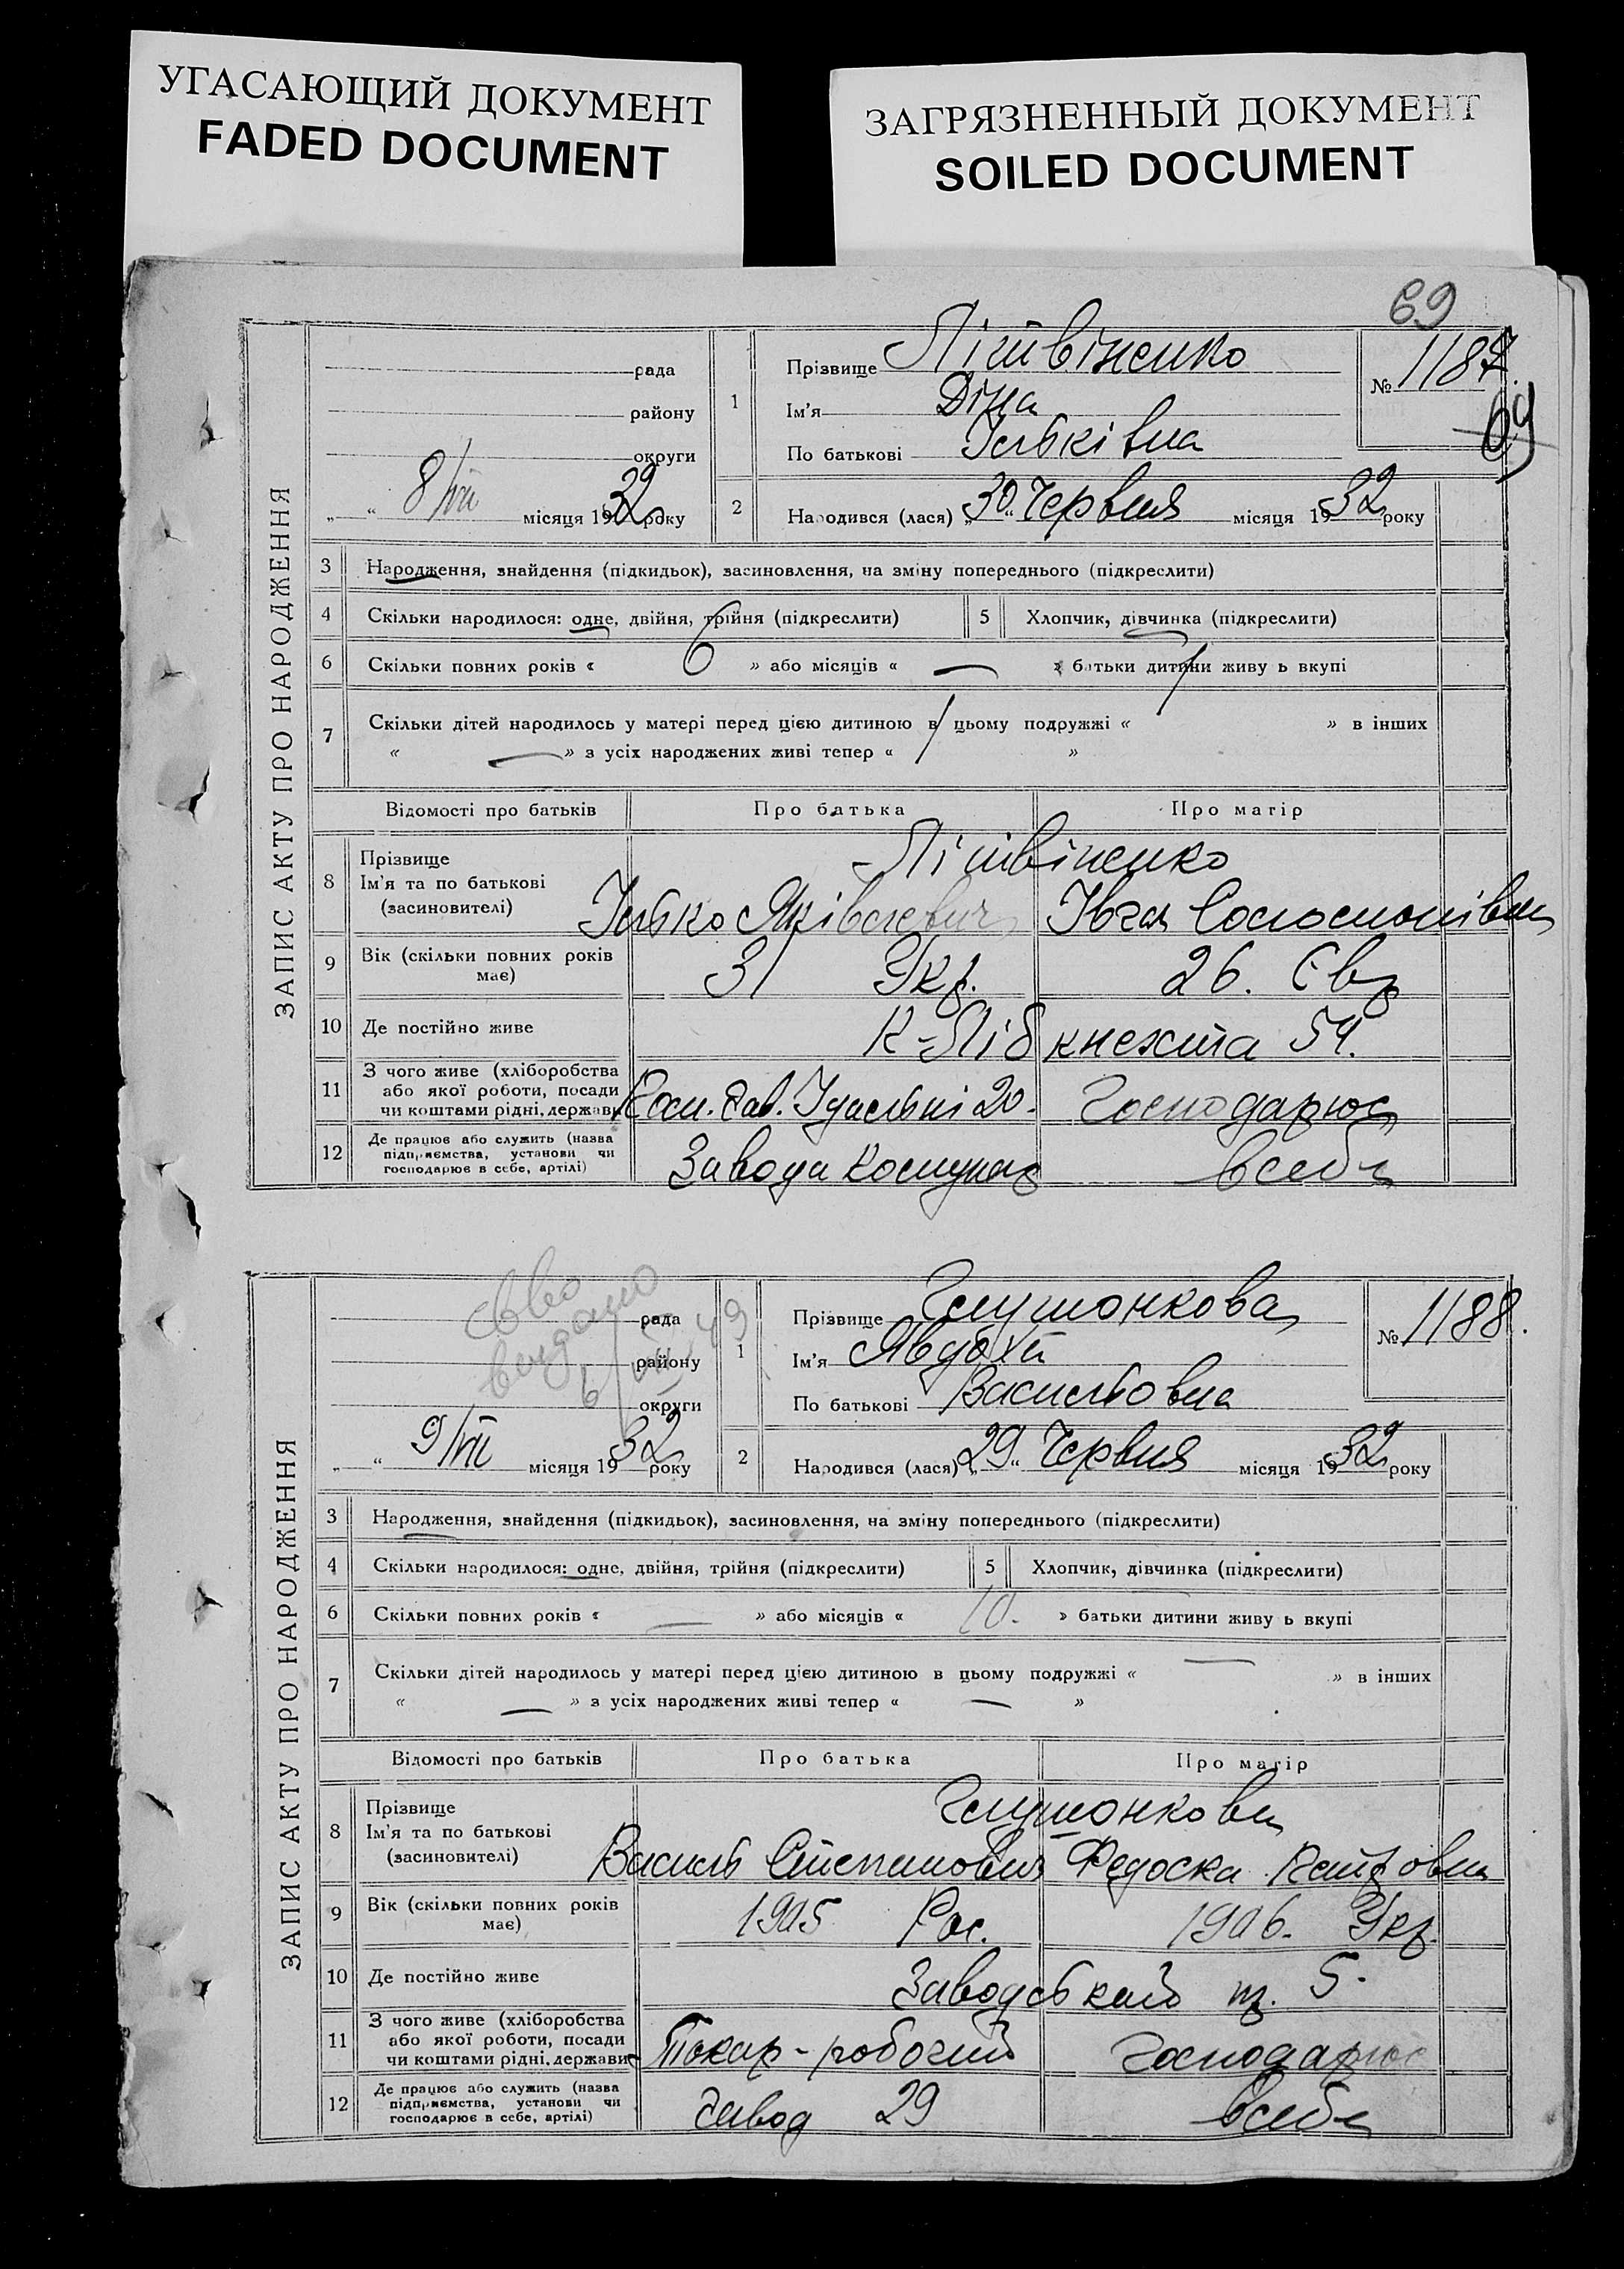 УГАСАЮЩИЙ ДОКУМЕНТ
FADED DOCUMENT
ЗАГРЯЗНЕННЫЙ ДОКУМЕНТ
SOILED DOCUMENT
69
ЗАПИС АКТУ ПРО НАРОДЖЕННЯ
рада
району
округи
„ “ 8/VII місяця 1932 року
1
Прізвище Літвіненко
Ім'я Діна
По батькові Ільківна
№ 1187.
69
2 Народився (лася) „30“ Червня місяця 1932 року
3 Народження, знайдення (підкидьок), засиновлення, на зміну попереднього (підкреслити)
4 Скільки народилося: одне, двійня, трійня (підкреслити) 5 Хлопчик, дівчинка (підкреслити)
6 Скільки повних років « 6 » або місяців « — » батьки дитини живу ь вкупі
7 Скільки дітей народилось у матері перед цією дитиною в цьому подружжі « 1 » в інших
« — » з усіх народжених живі тепер « 1 »
Відомості про батьків Про батька Про матір
8 Прізвище
Ім'я та по батькові
(засиновителі)
Літвіненко
Ілько Яківлевич Івга Соломонівна
9 Вік (скільки повних років має) 31 Укр. 26. Євр
10 Де постійно живе К-Лібкнехта 54.
11 З чого живе (хліборобства
або якої роботи, посади
чи коштами рідні, держави
зав. 20. Господарює
12 Де працює або служить (назва
підприємства, установи чи
господарює в себе, артілі)
Завода Комунар в себе
ЗАПИС АКТУ ПРО НАРОДЖЕННЯ
св-во
выдано
6/VIII 49
рада
району
округи
„ “ 9/VII місяця 1932 року
1
Прізвище Глушонкова
Ім'я Явдоха
По батькові Васильовна
№ 1188.
2 Народився (лася) „29“ Червня місяця 1932 року
3 Народження, знайдення (підкидьок), засиновлення, на зміну попереднього (підкреслити)
4 Скільки народилося: одне, двійня, трійня (підкреслити) 5 Хлопчик, дівчинка (підкреслити)
6 Скільки повних років « — » або місяців « 10. » батьки дитини живу ь вкупі
7 Скільки дітей народилось у матері перед цією дитиною в цьому подружжі « — » в інших
« — » з усіх народжених живі тепер « — »
Відомості про батьків Про батька Про матір
8 Прізвище
Ім'я та по батькові
(засиновителі)
Глушонкови
Василь Степанович Федоска
9 Вік (скільки повних років має) 1905 Рос. 1906. Укр.
10 Де постійно живе Заводський 5.
11 З чого живе (хліборобства
або якої роботи, посади
чи коштами рідні, держави
Токар-робочий Господарює
12 Де працює або служить (назва
підприємства, установи чи
господарює в себе, артілі)
завод 29 в себе